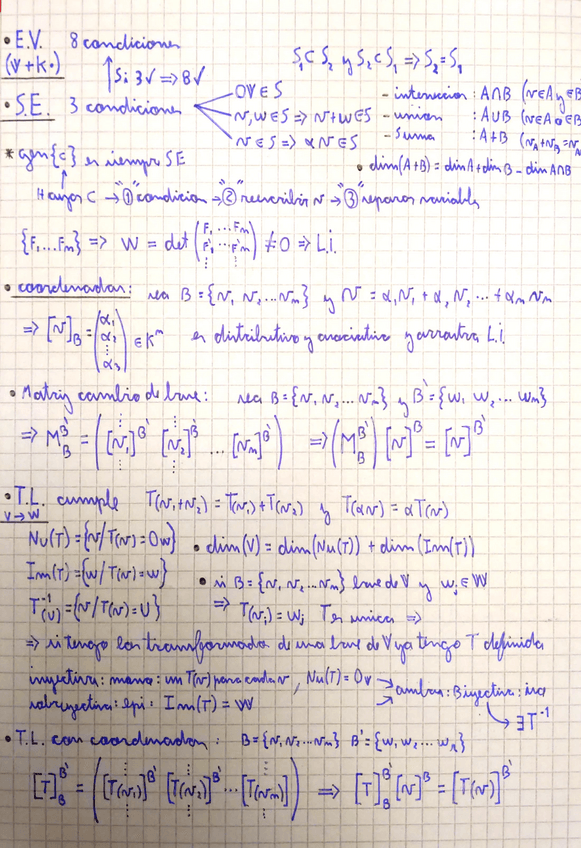 • E.V. 8 condiciones
(V + K •) ↑ Si 3✓ ⇒ 8✓ S₁ ⊂ S₂ y S₂ ⊂ S₁ ⇒ S₂ = S₁
• S.E. 3 condiciones
0V ∈ S
v, w ∈ S ⇒ v + w ∈ S
v ∈ S ⇒ αv ∈ S
- interseccion : A∩B (v∈A y ∈B
- union : A∪B (v∈A o ∈B
- Suma : A+B
• dim(A+B) = dim A + dim B - dim A∩B
* gen{c} es siempre SE
Hayas C → "①" condicion → "②" reescribir v → "③" separas variables
{F₁...Fₘ} ⇒ W = det (F₁ ... Fₘ
F'₁ ... F'ₘ
⋮ ⋮) ≠ 0 ⇒ L.i.
• coordenadas: sea B = {v₁ v₂ ... vₘ} y v = α₁v₁ + α₂v₂ ... + αₘvₘ
⇒ [v]_B = (α₁ α₂ ⋮ α₃) ∈ Kᵐ es distributivo y asociativo y arrastra L.i.
• Matriz cambio de base: sea B = {v₁ v₂ ... vₘ} y B' = {w₁ w₂ ... wₘ}
⇒ M_B^B' = ([v₁]^B' [v₂]^B' ... [vₘ]^B') ⇒ (M_B^B') [v]^B = [v]^B'
• T.L. cumple T(v₁+v₂) = T(v₁) + T(v₂) y T(αv) = αT(v)
V→W
Nu(T) = {v / T(v) = 0w} • dim(V) = dim(Nu(T)) + dim(Im(T))
Im(T) = {w / T(v) = w} • si B = {v₁ v₂ ... vₘ} base de V y wⱼ ∈ W
T⁻¹(U) = {v / T(v) = U} ⇒ T(vⱼ) = wⱼ T es unica ⇒
⇒ si tengo las transformadas de una base de V ya tengo T definida
inyectiva: mono: un T(v) para cada v, Nu(T) = 0v
sobreyectiva: epi: Im(T) = W
ambas: Biyectiva: iso
→ ∃ T⁻¹
• T.L. con coordenadas: B = {v₁ v₂ ... vₘ} B' = {w₁ w₂ ... wᵣ}
[T]_B^B' = ([T(v₁)]^B' [T(v₂)]^B' ... [T(vₘ)]^B') ⇒ [T]_B^B' [v]^B = [T(v)]^B'